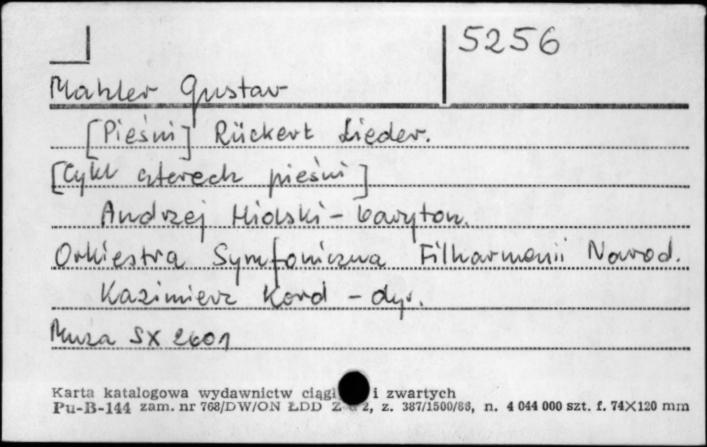 5256
Mahler Gustav
[Pieśni] Rückert Lieder.
[Cykl czterech pieśni]
Andrzej Hiolski - baryton.
Orkiestra Symfoniczna Filharmonii Narod.
Kazimierz Kord - dyr.
Muza SX 2601
Karta katalogowa wydawnictw ciągł i zwartych
Pu-B-144 zam. nr 768/DW/ON ŁDD Z 2, z. 387/1500/86, n. 4 044 000 szt. f. 74X120 mm